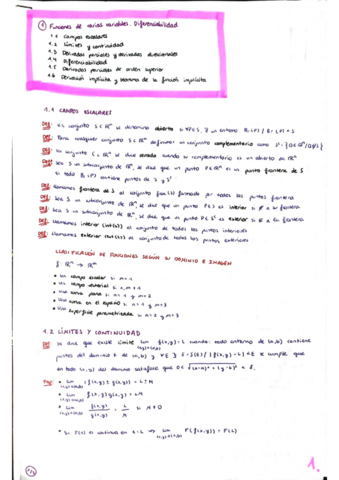 1 Funciones de varias variables. Diferenciabilidad
1.1 Campos escalares
1.2 Límites y continuidad
1.3 Derivadas parciales y derivadas direccionales
1.4 Diferenciabilidad
1.5 Derivadas parciales de orden superior
1.6 Derivación implícita y teorema de la función implícita
1.1 CAMPOS ESCALARES
Def: Un conjunto S ⊂ ℝⁿ se denomina abierto si ∀P∈S, ∃ un entorno
Def: Para cualquier conjunto S ⊂ ℝⁿ definimos su conjunto complementario como
Def: Un conjunto C ⊂ ℝⁿ se dice cerrado cuando su complementario es un abierto de ℝⁿ
Def: Sea S un subconjunto de ℝⁿ, se dice que un punto P∈ℝⁿ es un punto frontera de S
si todo contiene puntos de S y
Def: Llamamos frontera de S al conjunto formado por todos los puntos frontera
Def: Sea S un subconjunto de ℝⁿ, se dice que un punto P∈S es interior si P ∉ su frontera
Def: Sea S un subconjunto de ℝⁿ, se dice que un punto es exterior si P ∉ su frontera
Def: Llamamos interior (int(S)) al conjunto de todos los puntos interiores
Def: Llamamos exterior (ext(S)) al conjunto de todos los puntos exteriores
CLASIFICACIÓN DE FUNCIONES SEGÚN SU DOMINIO E IMAGEN
f: ℝⁿ → ℝᵐ
• Un campo escalar si m=1
• Un campo vectorial si
• Una curva plana si n=1 y m=2
• Una curva en el espacio si n=1 y m=3
• Una superficie parametrizada si n=2 y m=3
1.2 LÍMITES Y CONTINUIDAD
Def: Se dice que existe límite lim f(x,y)=L cuando: todo entorno de (a,b) contiene
puntos del dominio ≠ de (a,b) y ∀ε ∃ |f(x,y)-L|<ε se cumple que
en todo (x,y) del dominio satisface que 0<√(x-a)²+(y-b)²<δ.
Prop: • lim (f(x,y) ± g(x,y)) = L±M
• lim f(x,y)g(x,y) = LM
• lim f(x,y)/g(x,y) = L/M si M≠0
• Si F(t) es continua en t=L ⇒ lim F(f(x,y)) = F(L)
1.